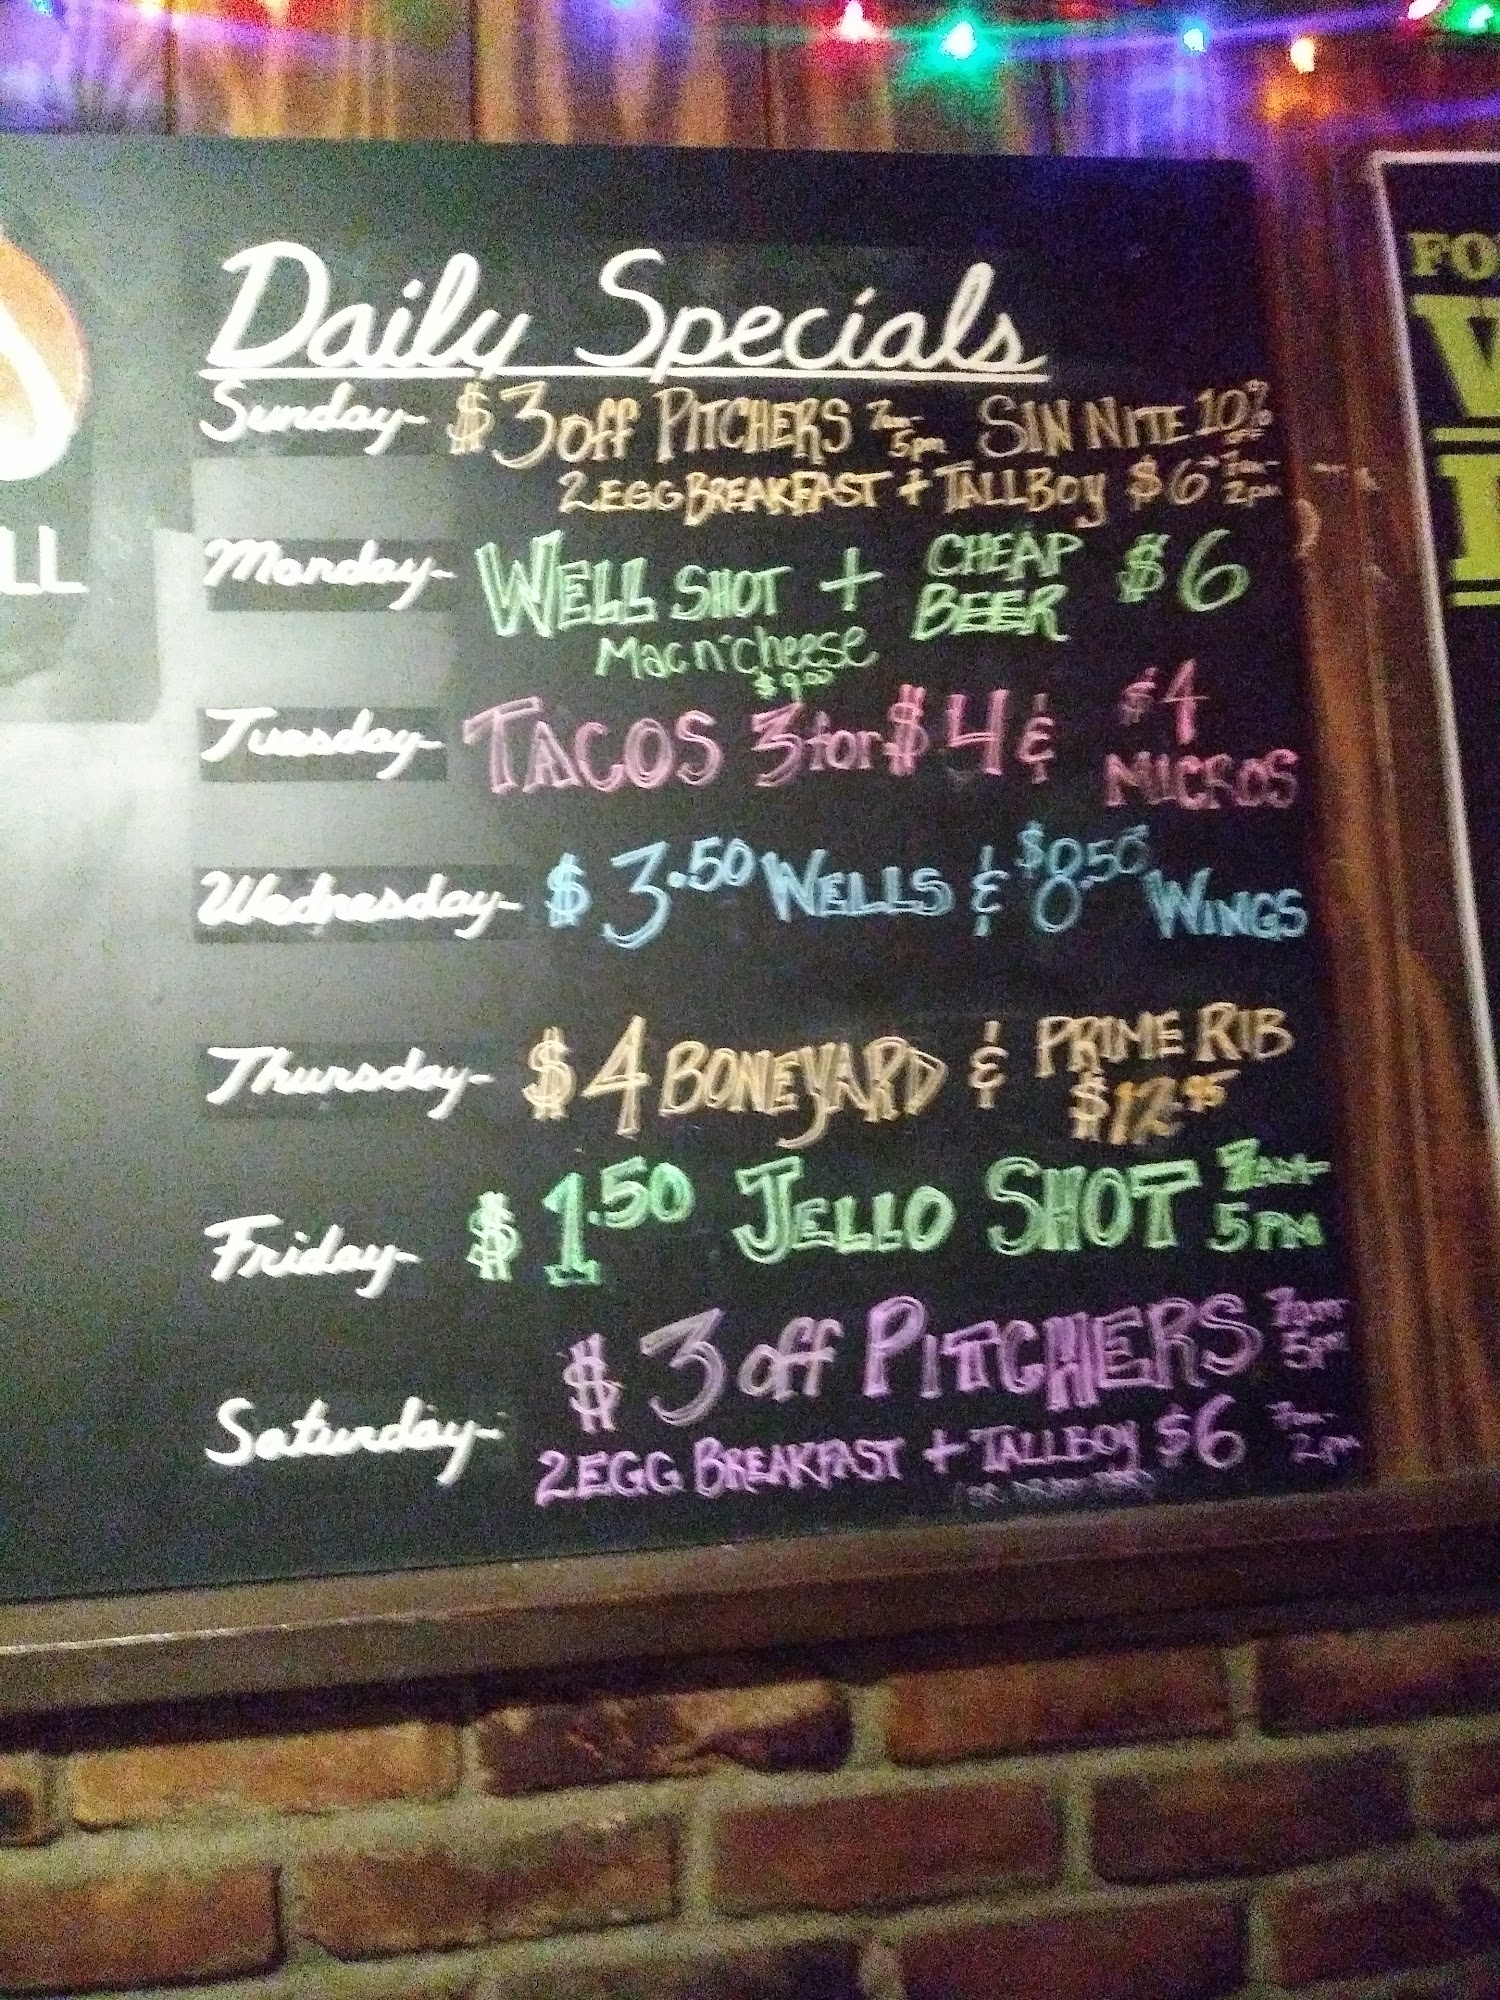 Daily Specials
Sunday- $3 off PITCHERS 7am-5pm SIN NITE 10% off
2 EGG BREAKFAST + TALLBOY $6 7am-2pm
Monday- WELL SHOT + CHEAP BEER $6
Mac n' cheese
$9.00
Tuesday- TACOS 3 for $4 & $4 MICROS
Wednesday- $3.50 WELLS & $8.50 WINGS
Thursday- $4 BONEYARD & PRIME RIB $12.95
Friday- $1.50 JELLO SHOT 7am-5PM
Saturday- $3 off PITCHERS 7am-5pm
2 EGG BREAKFAST + TALLBOY $6 7am-2pm
LL
FO